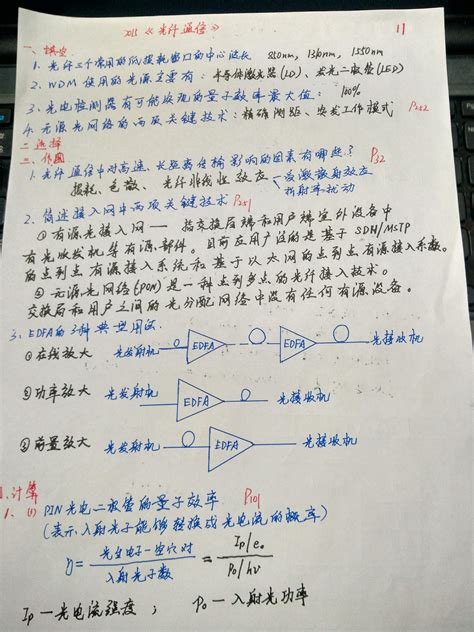 2015《光纤通信》
11
一、填空
1. 光纤三个常用的低损耗窗口的中心波长 850nm, 1310nm, 1550nm
2. WDM 使用的光源主要有：半导体激光器(LD)、发光二极管(LED)
3. 光电检测器有可能达到的量子效率最大值：100%
4. 无源光网络的两项关键技术：精确测距、突发工作模式 P252
二、选择
三、作图
1. 光纤通信中对高速、长距离传输影响的因素有哪些？ P32
损耗、色散、光纤非线性效应 受激散射效应
折射率扰动
2. 简述接入网中两项关键技术 P251
①有源光接入网—— 指交换局端和用户端室外设备中
有光收发机等有源部件。目前在用户段的是基于SDH/MSTP
的点到点有源接入系统和基于以太网的点到点有源接入系统。
②无源光网络(PON)是一种点到多点的光纤接入技术。
交换局和用户之间的光分配网络中没有任何有源设备。
3. EDFA的3种典型用法
①在线放大 光发射机 EDFA EDFA 光接收机
②功率放大 光发射机 EDFA 光接收机
③前置放大 光发射机 EDFA 光接收机
四、计算
1、(1) PIN光电二极管的量子效率 P101
(表示入射光子能够转换成光电流的概率)
η = 光生电子-空穴对 / 入射光子数 = Ip/e0 / P0/hν
Ip — 光电流强度 ； P0 — 入射光功率